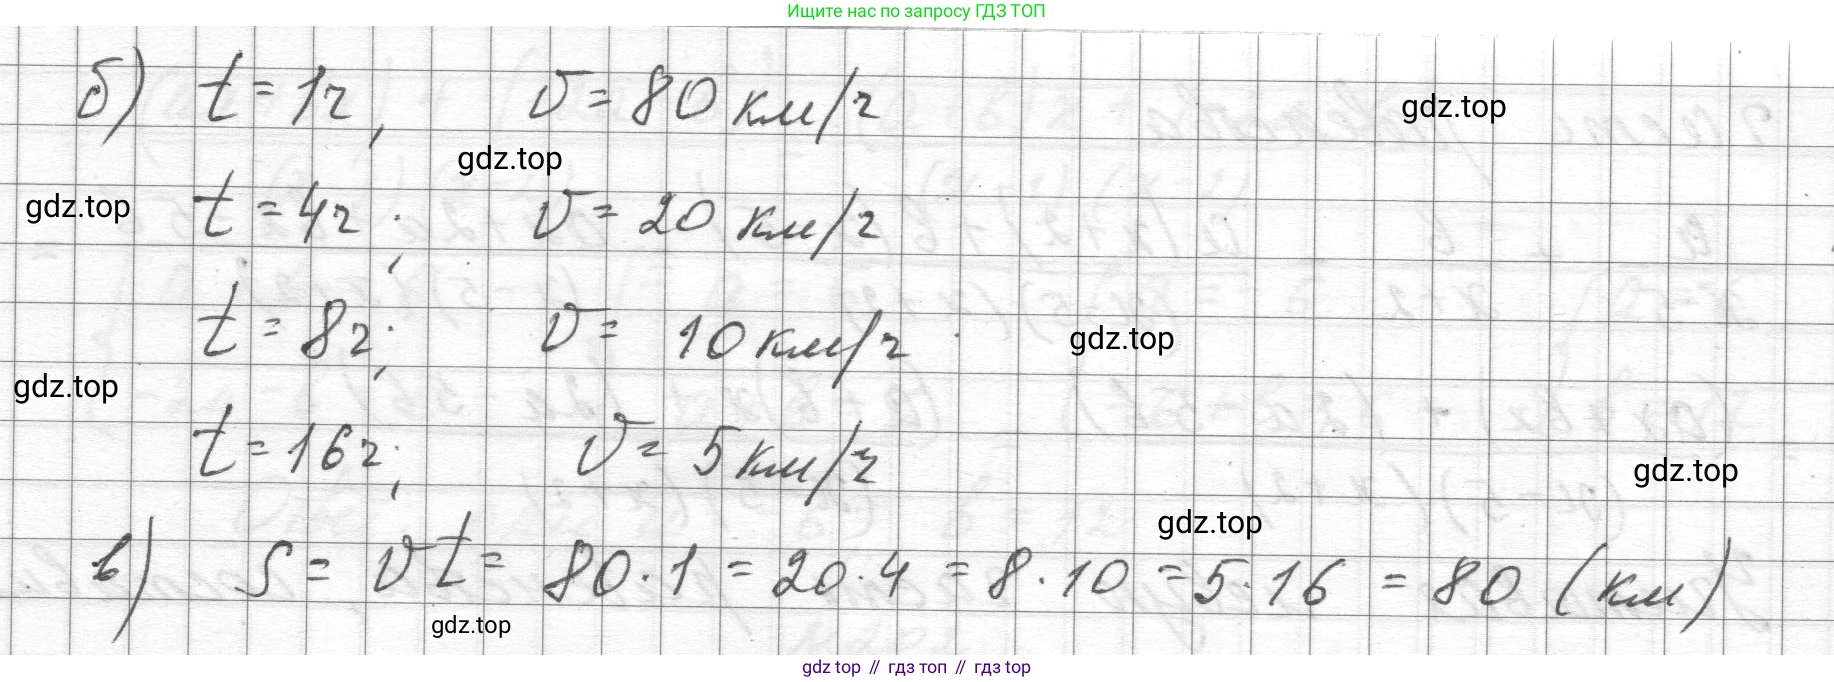 Ищите нас по запросу ГДЗ ТОП
б) t = 1ч, v = 80 км/ч
gdz.top
gdz.top
t = 4ч; v = 20 км/ч
gdz.top
t = 8ч; v = 10 км/ч
gdz.top
gdz.top
t = 16ч; v = 5 км/ч
gdz.top
gdz.top
в) S = vt = 80·1 = 20·4 = 8·10 = 5·16 = 80 (км)
gdz.top
gdz top // гдз топ // gdz top